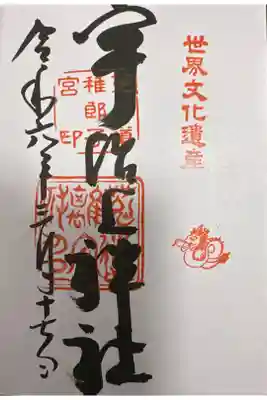 世界文化遺産
宇治上神社
稚郎
宮印
令和六年三月十七日